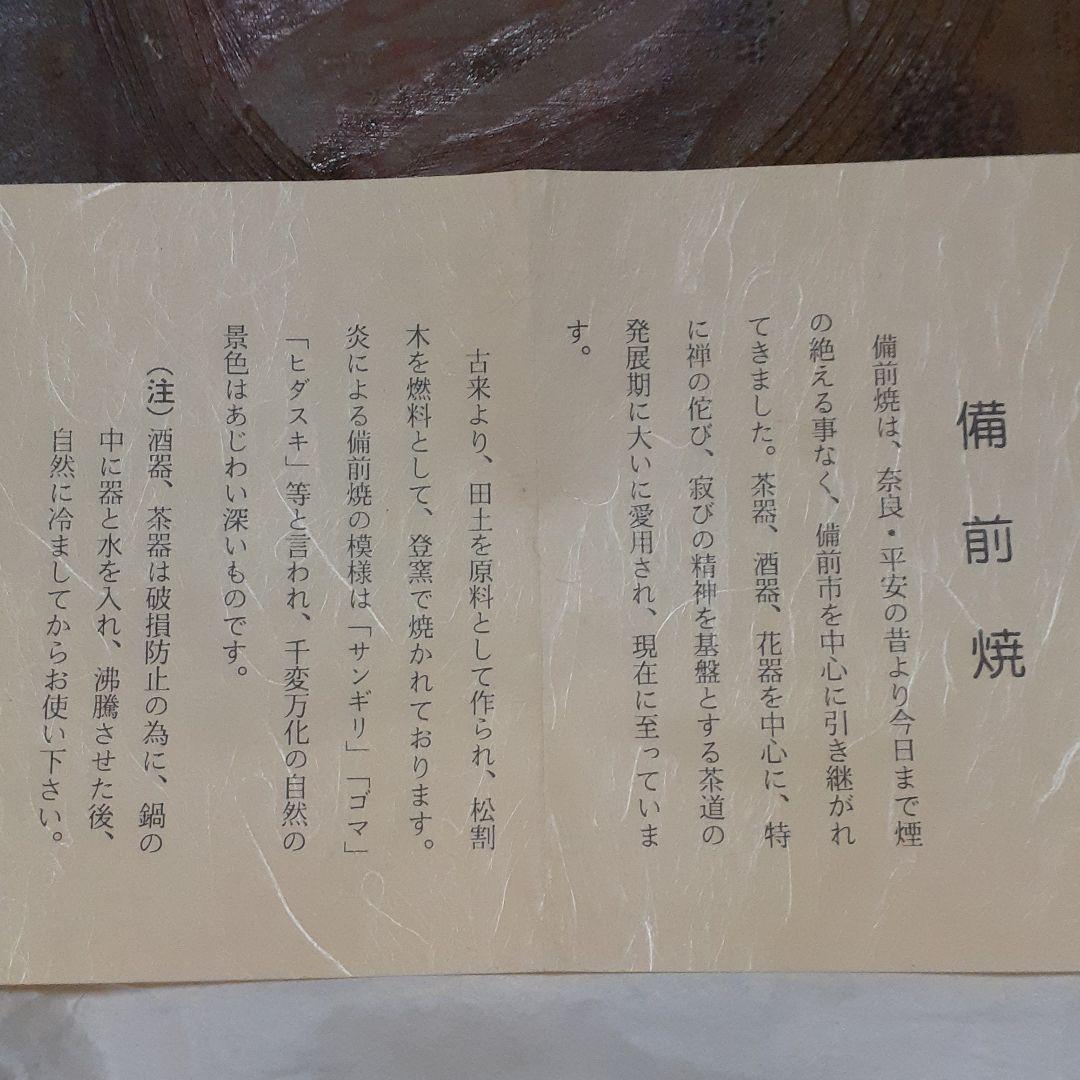 備前焼
備前焼は、奈良・平安の昔より今日まで煙
の絶える事なく、備前市を中心に引き継がれ
てきました。茶器、酒器、花器を中心に、特
に禅の侘び、寂びの精神を基盤とする茶道の
発展期に大いに愛用され、現在に至っていま
す。
古来より、田土を原料として作られ、松割
木を燃料として、登窯で焼かれております。
炎による備前焼の模様は「サンギリ」「ゴマ」
「ヒダスキ」等と言われ、千変万化の自然の
景色はあじわい深いものです。
(注)酒器、茶器は破損防止の為に、鍋の
中に器と水を入れ、沸騰させた後、
自然に冷ましてからお使い下さい。